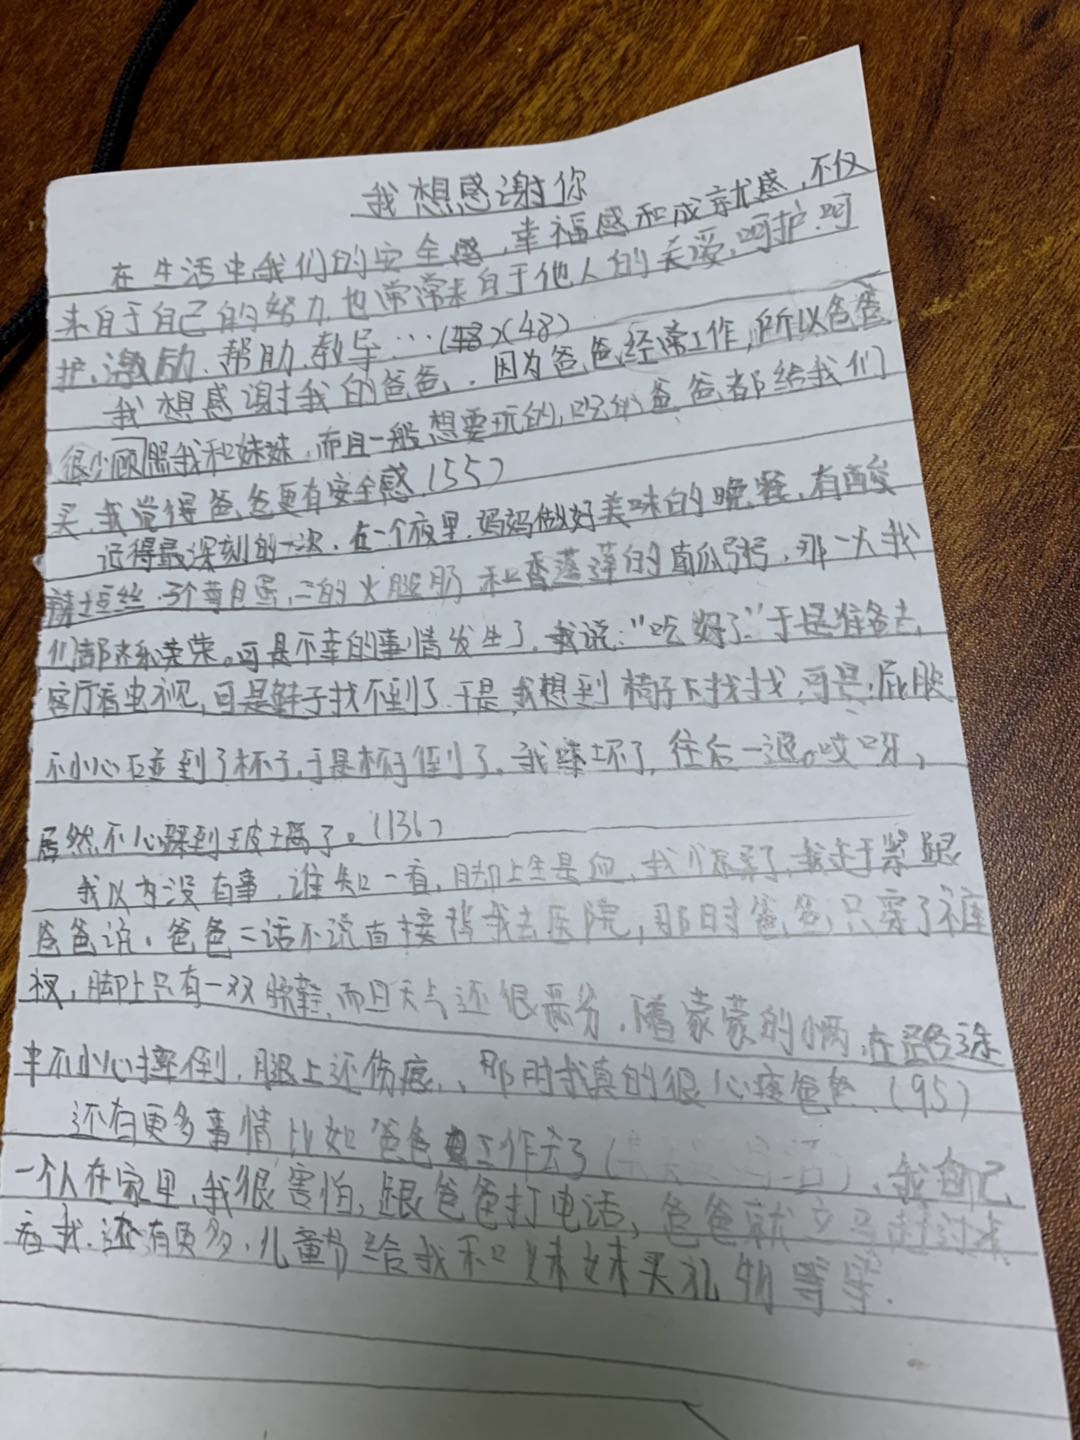 我想感谢你
在生活中我们的安全感,幸福感和成就感,不仅
来自于自己的努力,也常常来自于他人的关爱,呵护.呵
护、激励、帮助、教导…(48)(48)
我想感谢我的爸爸,因为爸爸经常工作,所以爸爸
很少顾照我和妹妹,而且一般想要玩的,吃的爸爸都给我们
买,我觉得爸爸更有安全感.(55)
记得最深刻的一次,在一个夜里,妈妈做好美味的晚餐,有酸
辣土豆丝,的火腿肠和香的南瓜粥,那一天我
们都。可是不幸的事情发生了,我说:"吃好了"于是
客厅看电视,可是鞋子找不到了,于是,我想到椅子下找找,可是,屁股
不小心碰到了杯子,于是杯子倒了,我坏了,往后一退。哎呀,
居然不心踩到玻璃了。(136)
我以为没有事,谁知一看,脚上全是血,我,我跟
爸爸说,爸爸二话不说直接背我去医院,那时爸爸只穿了
衩,脚上只有一双鞋,而且天气还很,蒙蒙的小雨,在路途
中不小心摔倒,腿上还伤,那时我真的很心疼爸爸.(95)
还有更多事情比如爸爸工作去了(),我自己
一个人在家里,我很害怕,跟爸爸打电话,爸爸就立马赶过来
看我.还有更多,儿童节给我和妹妹买礼物等等.